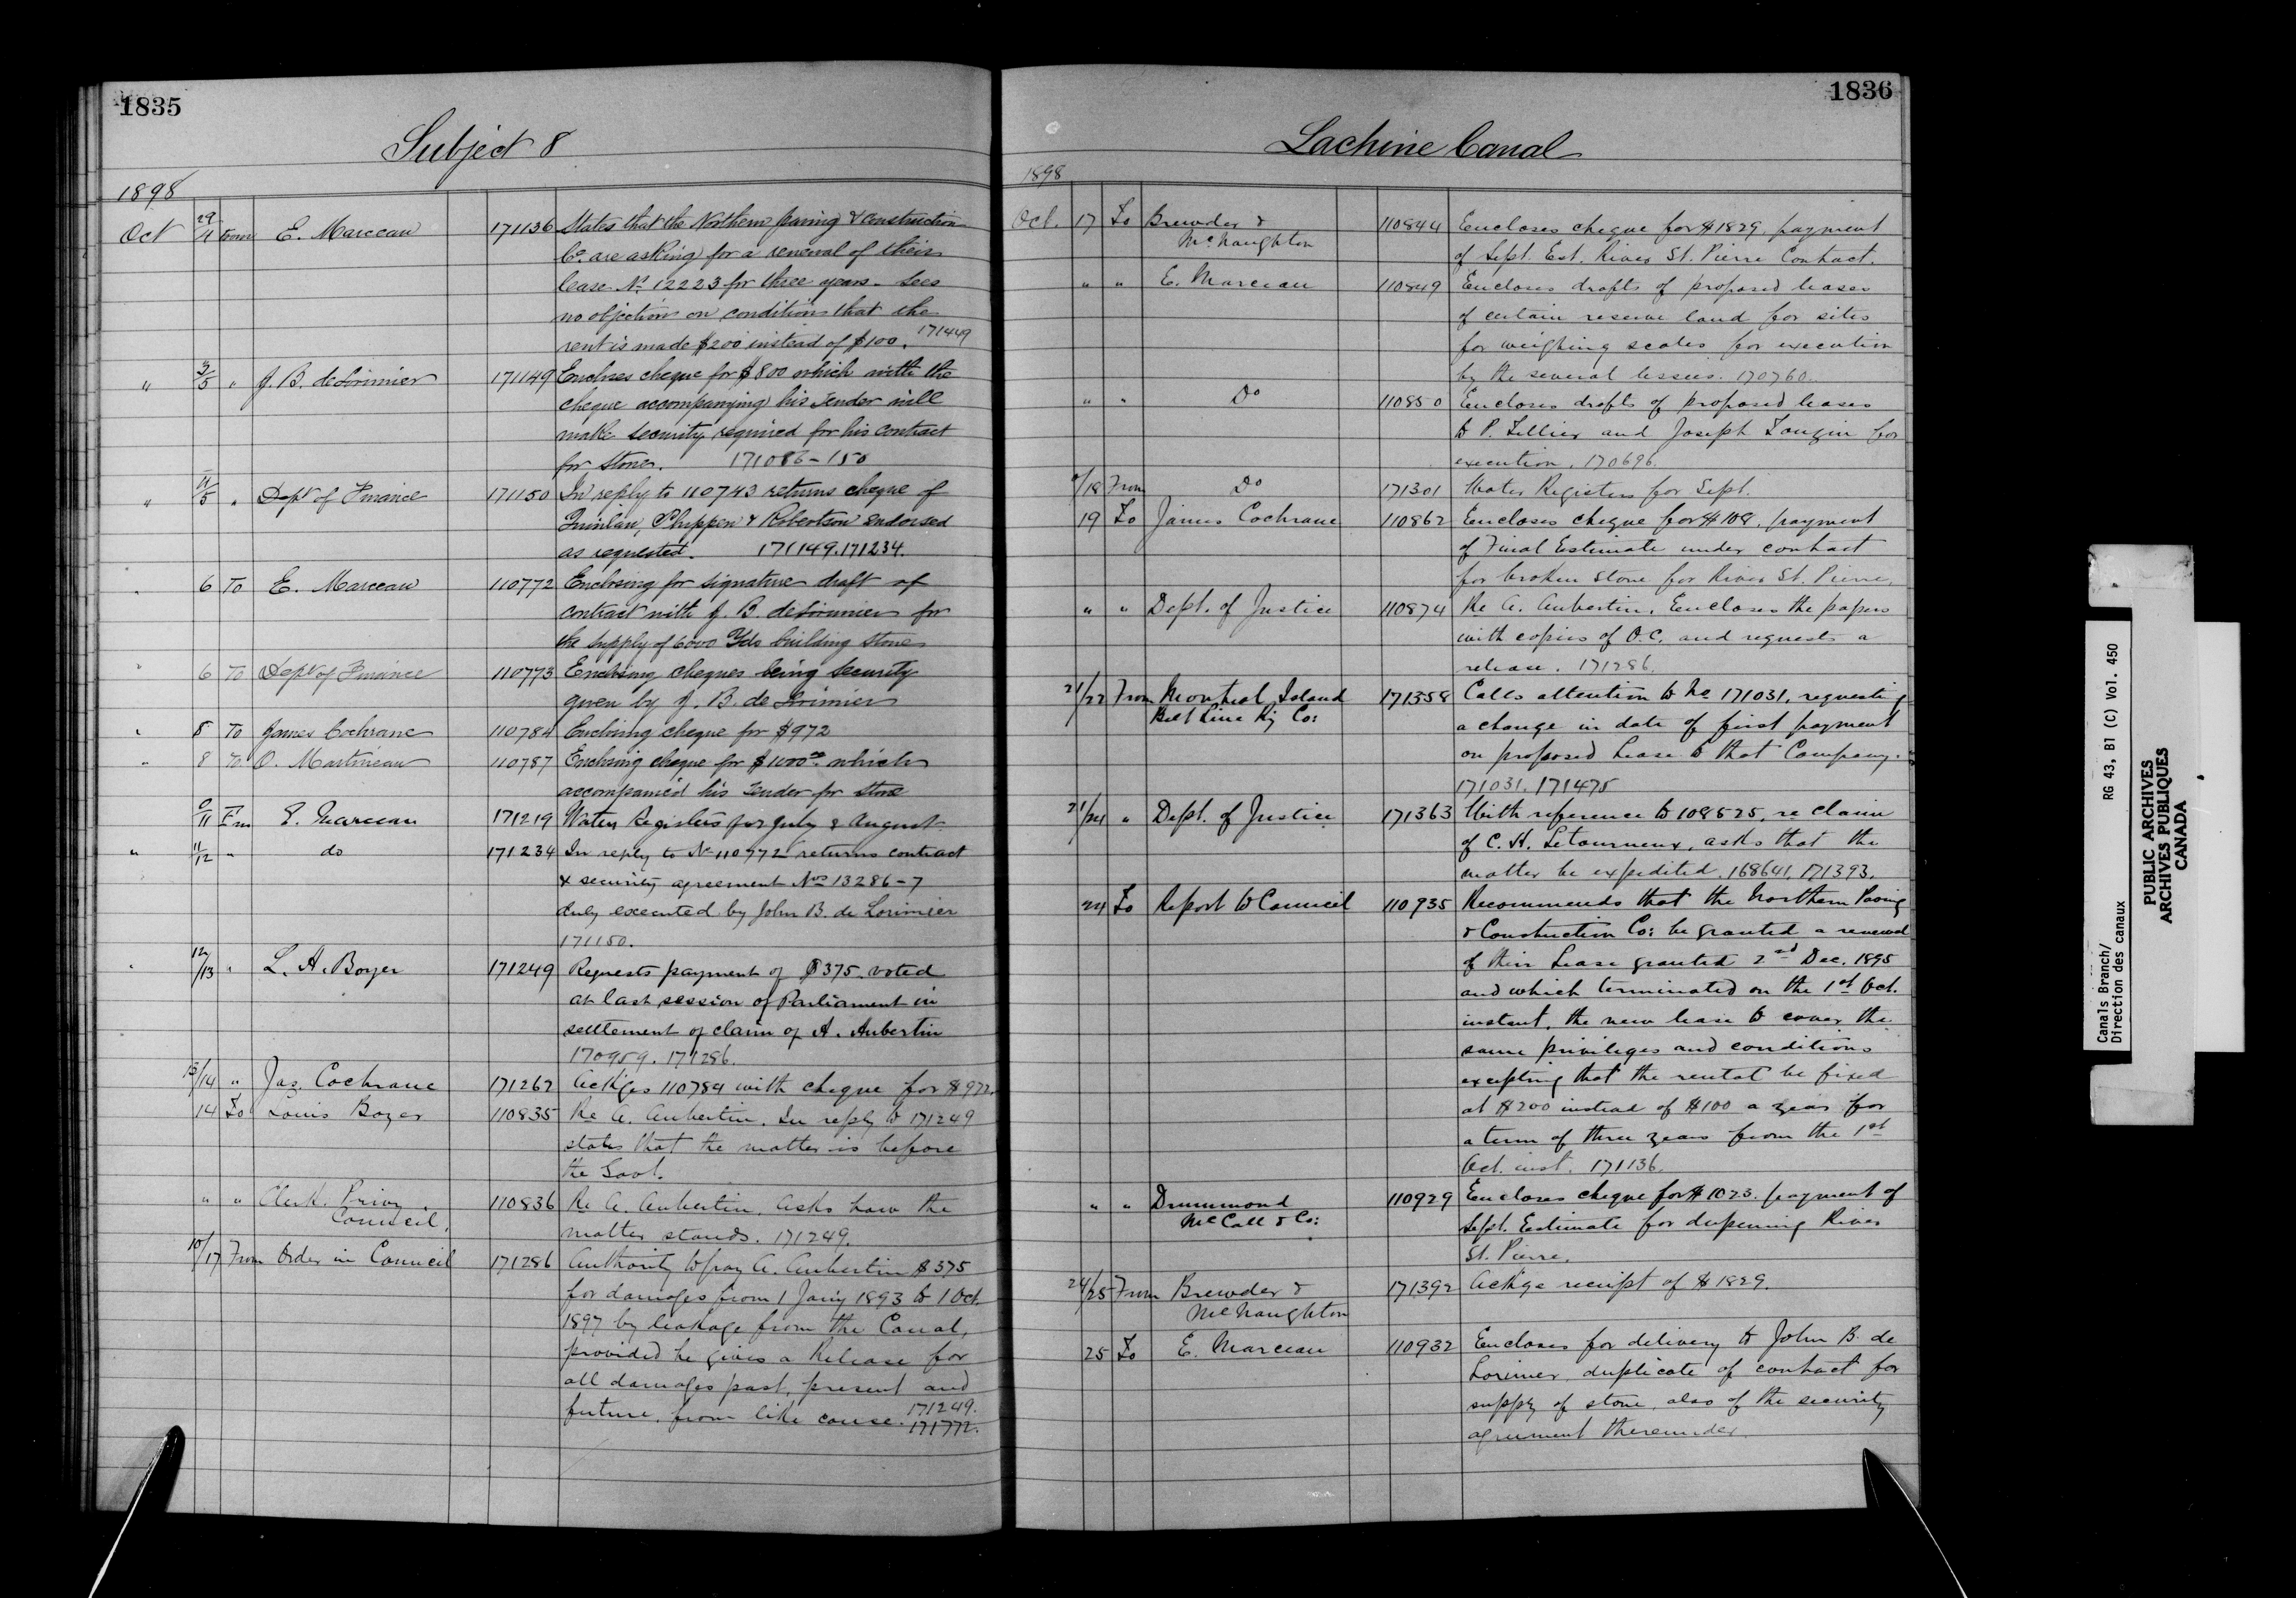 1835
Subject 8
1898
Oct 29/4 from E. Marceau 171136 States that the Northern paving & construction
Co. are asking for a renewal of their
lease No. 12223 for three years. Sees
no objection on condition that the
rent is made $200 instead of $100. 171449
" 3/5 " J. B. de Lorimier 171149 Encloses cheque for $800 which with the
cheque accompanying his tender will
make security required for his contract
for stone. 171086-150
" 4/5 " Dept of Finance 171150 In reply to 110743 returns cheque of
Quinlan, Phippen & Robertson endorsed
as requested. 171149.171234.
" 6 To E. Marceau 110772 Enclosing for signature draft of
contract with J. B. deLorimier for
the supply of 6000 Yds building stone
" 6 To Dept of Finance 110773 Enclosing cheques being security
given by J. B. de Lorimier
" 8 To James Cochrane 110784 Enclosing cheque for $972
" 8 To O. Martineau 110787 Enclosing cheque for $1100.00 which
accompanied his tender for stone
/11 Fm E. Marceau 171219 Water Registers for July & August
" 11/12 " do 171234 In reply to No 110772 returns contract
& security agreement Nos 13286-7
duly executed by John B. de Lorimier
171150.
" 12/13 " L. A. Boyer 171249 Requests payment of $375. voted
at last session of Parliament in
settlement of claim of A. Aubertin
170959. 171286.
13/14 " Jas. Cochrane 171267 Ackges 110784 with cheque for $972.
14 To Louis Boyer 110835 Re A. Aubertin. In reply to 171249
states that the matter is before
the Govt.
" " Clerk. Privy
Council. 110836 Re A. Aubertin. Asks how the
matter stands. 171249.
10/17 From Order in Council 171286 Authority to pay A. Aubertin $375
for damages from 1 Jany 1893 to 1 Oct.
1897 by leakage from the Canal,
provided he gives a Release for
all damages past, present and
future, from like cause. 171249.
171772.
1836
Lachine Canal
1898
Oct. 17 To Brewder &
McNaughton 110844 Encloses cheque for $1829. payment
of Sept. Est. River St. Pierre Contract.
" " E. Marceau 110849 Encloses drafts of proposed leases
of certain reserve land for sites
for weighing scales for execution
by the several lessees. 170760.
" " Do 110850 Encloses drafts of proposed leases
to P. Tellier and Joseph for
execution. 170696.
/18 From Do 171301 Water Registers for Sept.
19 To James Cochrane 110862 Encloses cheque for $108. payment
of Final Estimate under contract
for broken stone for River St. Pierre.
" " Dept. of Justice 110874 Re A. Aubertin. Encloses the papers
with copies of O.C. and requests a
release. 171286.
21/22 From Montreal Island
Belt Line Ry Co: 171358 Calls attention to No 171031, requesting
a change in date of first payment
on proposed Lease to that Company.
171031. 171475
21/24 " Dept. of Justice 171363 With reference to 108525, re claim
of C. H. Letourneux, asks that the
matter be expedited. 168641. 171393.
24 To Report to Council 110935 Recommends that the Northern Paving
& Construction Co: be granted a renewal
of their Lease granted 2nd Dec. 1895
and which terminated on the 1st Oct.
instant, the new lease to cover the
same privileges and conditions
excepting that the rental be fixed
at $200 instead of $100 a year for
a term of three years from the 1st
Oct. inst. 171136.
" " Drummond
McCall & Co: 110929 Encloses cheque for $1023. payment of
Sept. Estimate for deepening River
St. Pierre.
24/25 From Brewder &
McNaughton 171392 Ackge receipt of $1829.
25 To E. Marceau 110932 Encloses for delivery to John B. de
Lorimer duplicate of contract for
supply of stone, also of the security
agreement thereunder
Canals Branch/
Direction des canaux
RG 43, B1 (C) Vol. 450
PUBLIC ARCHIVES
ARCHIVES PUBLIQUES
CANADA